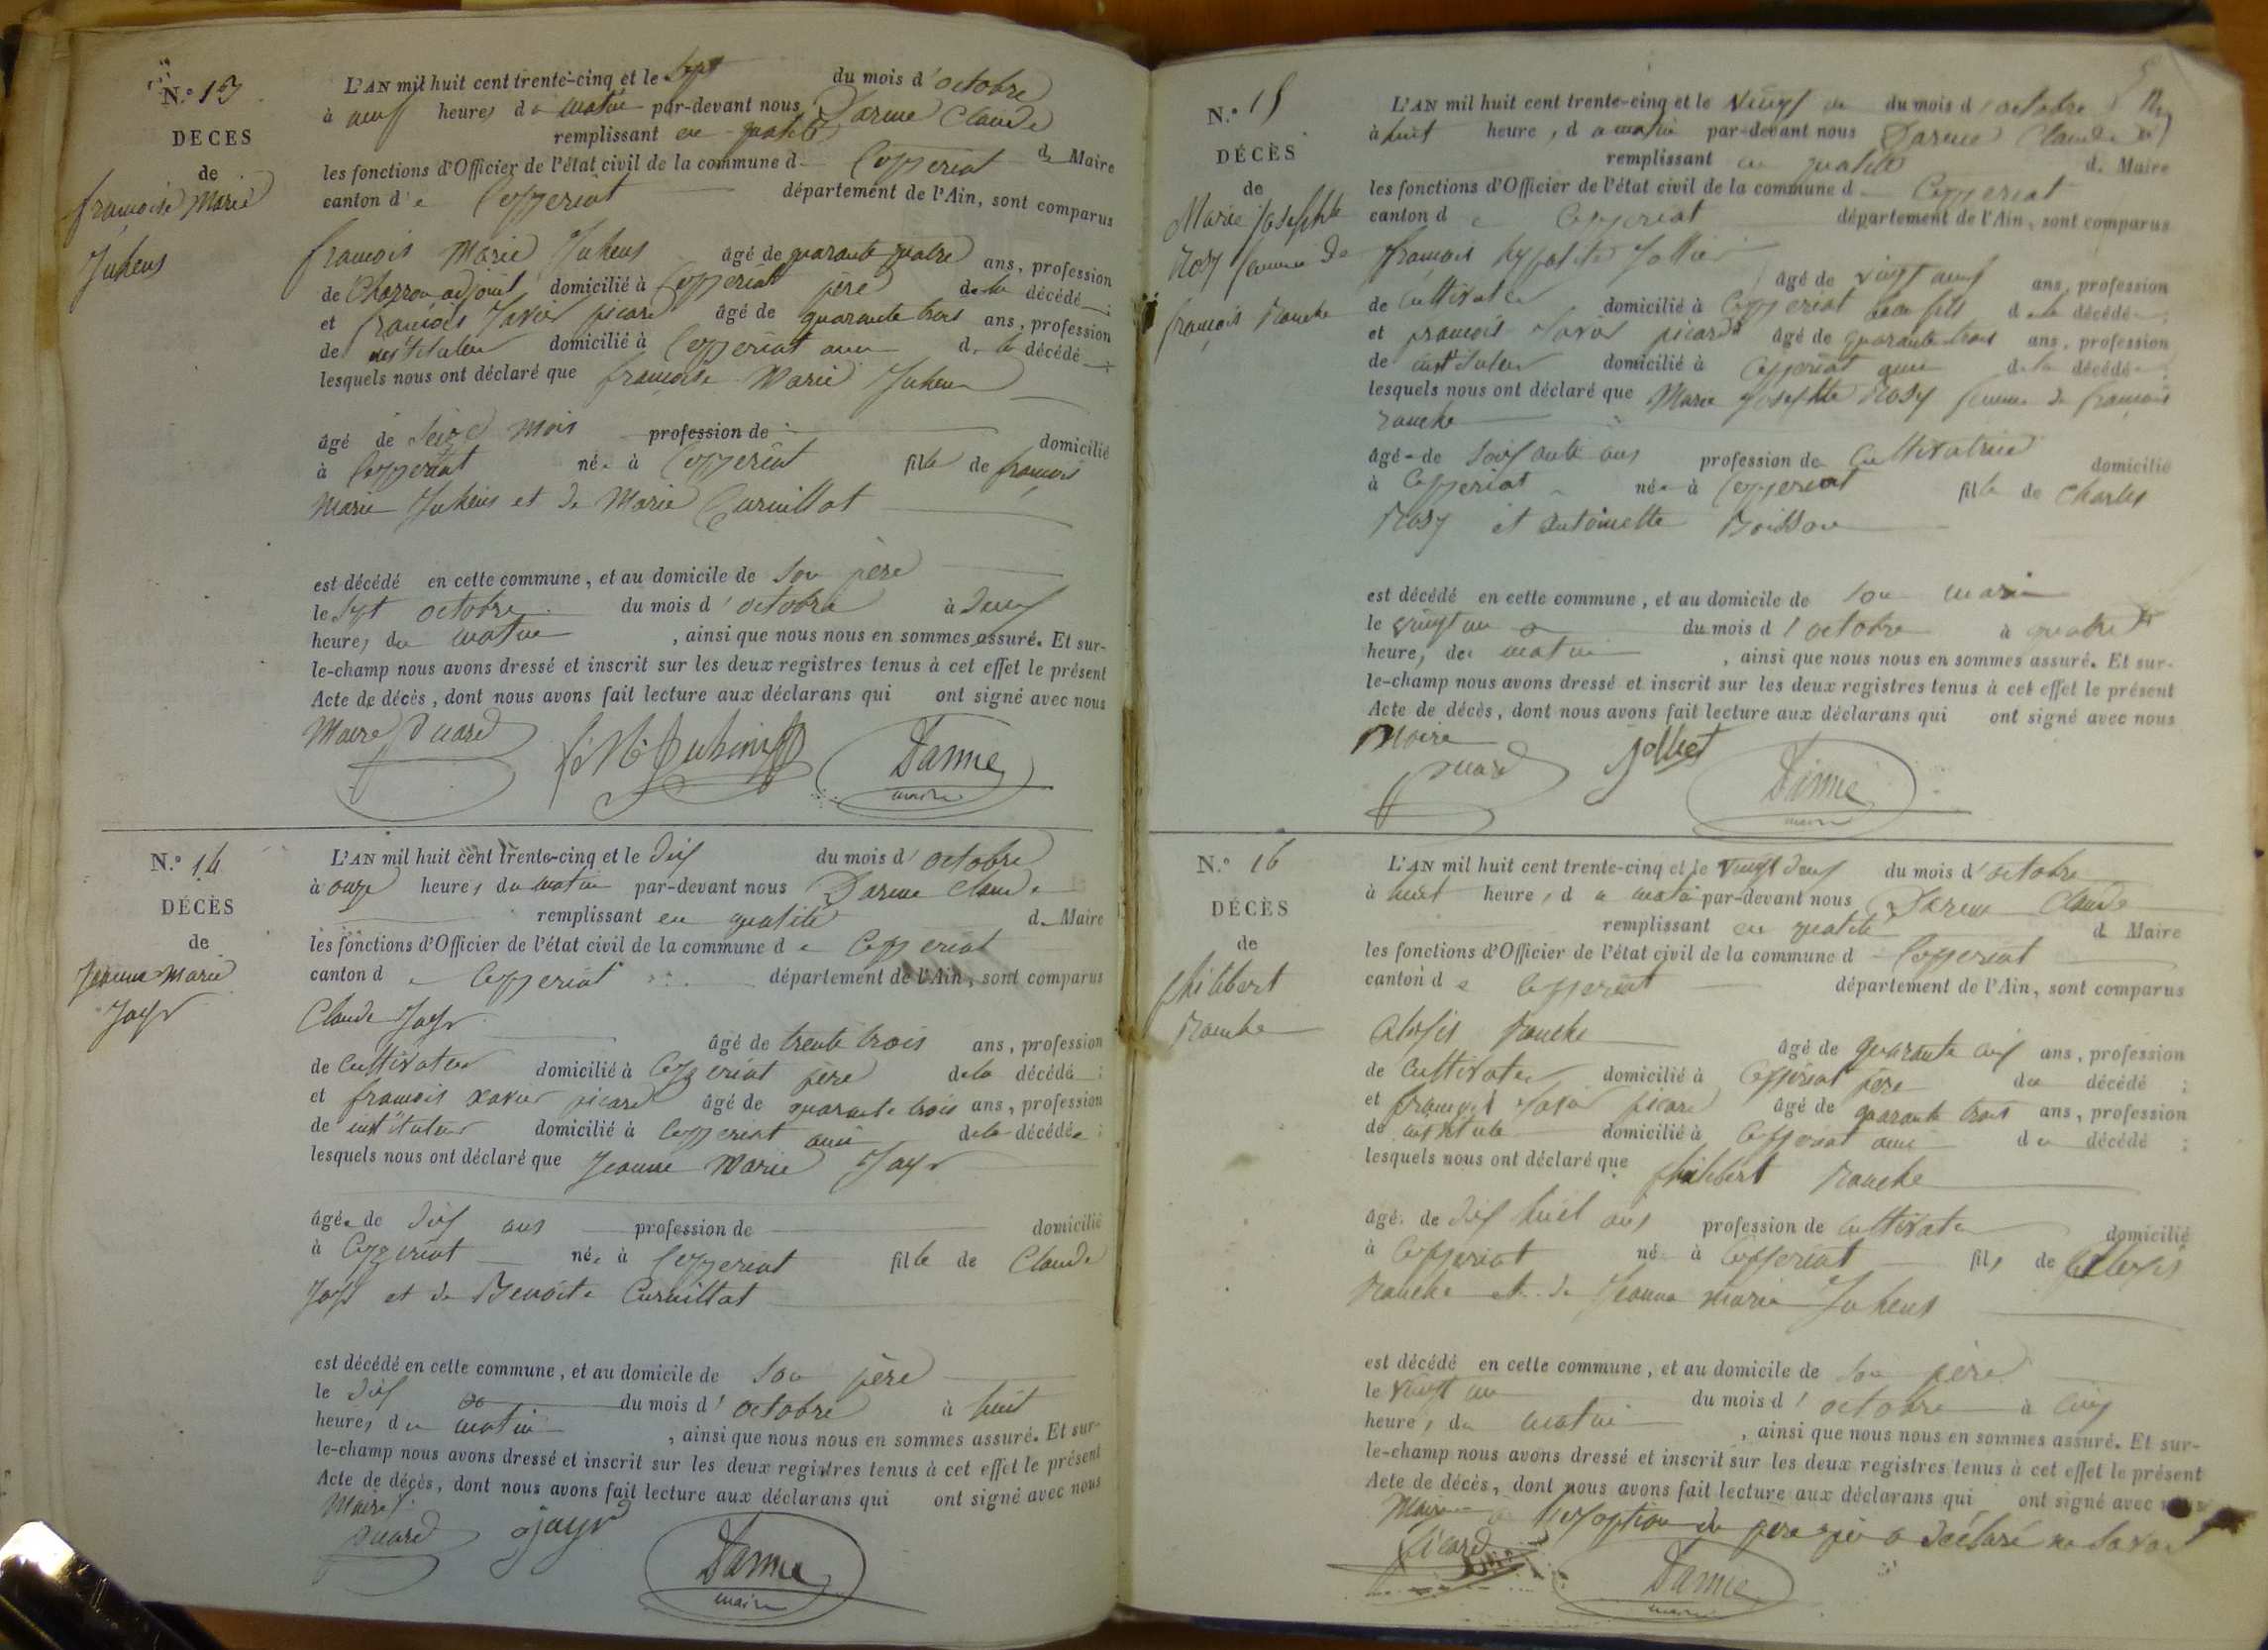 N.° 13
DÉCÈS
de
françoise Marie
Juhens
L'AN mil huit cent trente-cinq et le sept du mois d'octobre
à neuf heures du matin par-devant nous Darme Claude
remplissant en qualité de Maire
les fonctions d'Officier de l'état civil de la commune d Ceyzeriat
canton de Ceyzeriat département de l'Ain, sont comparus
françois Marie Juhens âgé de quarante quatre ans, profession
de Charron adjoint domicilié à Ceyzeriat père de la décédé ;
et françois Xavier picard âgé de quarante trois ans, profession
de instituteur domicilié à Ceyzeriat ami de la décédé
lesquels nous ont déclaré que françoise Marie Juhens
âgé de seize mois profession de domicilié
à Ceyzeriat née à Ceyzeriat fille de françois
Marie Juhens et de Marie Curnillat
est décédé en cette commune, et au domicile de son père
le sept octobre du mois d'octobre à deux
heures du matin, ainsi que nous nous en sommes assuré. Et sur-
le-champ nous avons dressé et inscrit sur les deux registres tenus à cet effet le présent
Acte de décès, dont nous avons fait lecture aux déclarans qui ont signé avec nous
Maire picard f M Juhens Darme
maire
N.° 14
DÉCÈS
de
Jeanne Marie
Jayr
L'AN mil huit cent trente-cinq et le dix du mois d'octobre
à onze heures du matin par-devant nous Darme Claude
remplissant en qualité de Maire
les fonctions d'Officier de l'état civil de la commune de Ceyzeriat
canton de Ceyzeriat département de l'Ain, sont comparus
Claude Jayr
âgé de trente trois ans, profession
de Cultivateur domicilié à Ceyzeriat père de la décédé ;
et françois xavier picard âgé de quarante trois ans, profession
de instituteur domicilié à Ceyzeriat ami de la décédée ;
lesquels nous ont déclaré que Jeanne Marie Jayr
âgée de dix ans profession de domicilié
à Ceyzeriat née à Ceyzeriat fille de Claude
Jayr et de Benoite Curnillat
est décédé en cette commune, et au domicile de son père
le dix du mois d'octobre à huit
heures du matin, ainsi que nous nous en sommes assuré. Et sur-
le-champ nous avons dressé et inscrit sur les deux registres tenus à cet effet le présent
Acte de décès, dont nous avons fait lecture aux déclarans qui ont signé avec nous
Maire
picard jayr Darme
maire
N.° 15
DÉCÈS
de
Marie Josephte
Rosy femme de
françois Ranche
L'AN mil huit cent trente-cinq et le vingt un du mois d'octobre
à huit heures du matin par-devant nous Darme Claude
remplissant en qualité de Maire
les fonctions d'Officier de l'état civil de la commune d Ceyzeriat
canton de Ceyzeriat département de l'Ain, sont comparus
françois hypolite Jolliet
âgé de vingt neuf ans, profession
de Cultivateur domicilié à Ceyzeriat beau fils de la décédée ;
et françois Xavier picard âgé de quarante trois ans, profession
de instituteur domicilié à Ceyzeriat ami de la décédée ;
lesquels nous ont déclaré que Marie Josephte Rosy femme de françois
Ranche
âgée de soixante ans profession de Cultivatrice domicilié
à Ceyzeriat née à Ceyzeriat fille de Charles
Rosy et Antoinette Boisson
est décédé en cette commune, et au domicile de son mari
le vingt un du mois d'octobre à quatre
heures du matin, ainsi que nous nous en sommes assuré. Et sur-
le-champ nous avons dressé et inscrit sur les deux registres tenus à cet effet le présent
Acte de décès, dont nous avons fait lecture aux déclarans qui ont signé avec nous
Maire
picard Jolliet Darme
maire
N.° 16
DÉCÈS
de
philibert
Ranche
L'AN mil huit cent trente-cinq et le vingt deux du mois d'octobre
à huit heures du matin par-devant nous Darme Claude
remplissant en qualité d Maire
les fonctions d'Officier de l'état civil de la commune d Ceyzeriat
canton de Ceyzeriat département de l'Ain, sont comparus
Alexis Ranche
âgé de quarante cinq ans, profession
de Cultivateur domicilié à Ceyzeriat père du décédé ;
et françois Xavier picard âgé de quarante trois ans, profession
de domicilié à Ceyzeriat ami du décédé ;
lesquels nous ont déclaré que philibert Ranche
âgé de dix huit ans profession de cultivateur domicilié
à Ceyzeriat né à Ceyzeriat fils de Alexis
Ranche et de Jeanne Marie Juhens
est décédé en cette commune, et au domicile de son père
le vingt un du mois d'octobre à cinq
heures du matin, ainsi que nous nous en sommes assuré. Et sur-
le-champ nous avons dressé et inscrit sur les deux registres tenus à cet effet le présent
Acte de décès, dont nous avons fait lecture aux déclarans qui ont signé avec nous
Maire à l'exception du père qui a déclaré ne savoir
picard Darme
maire